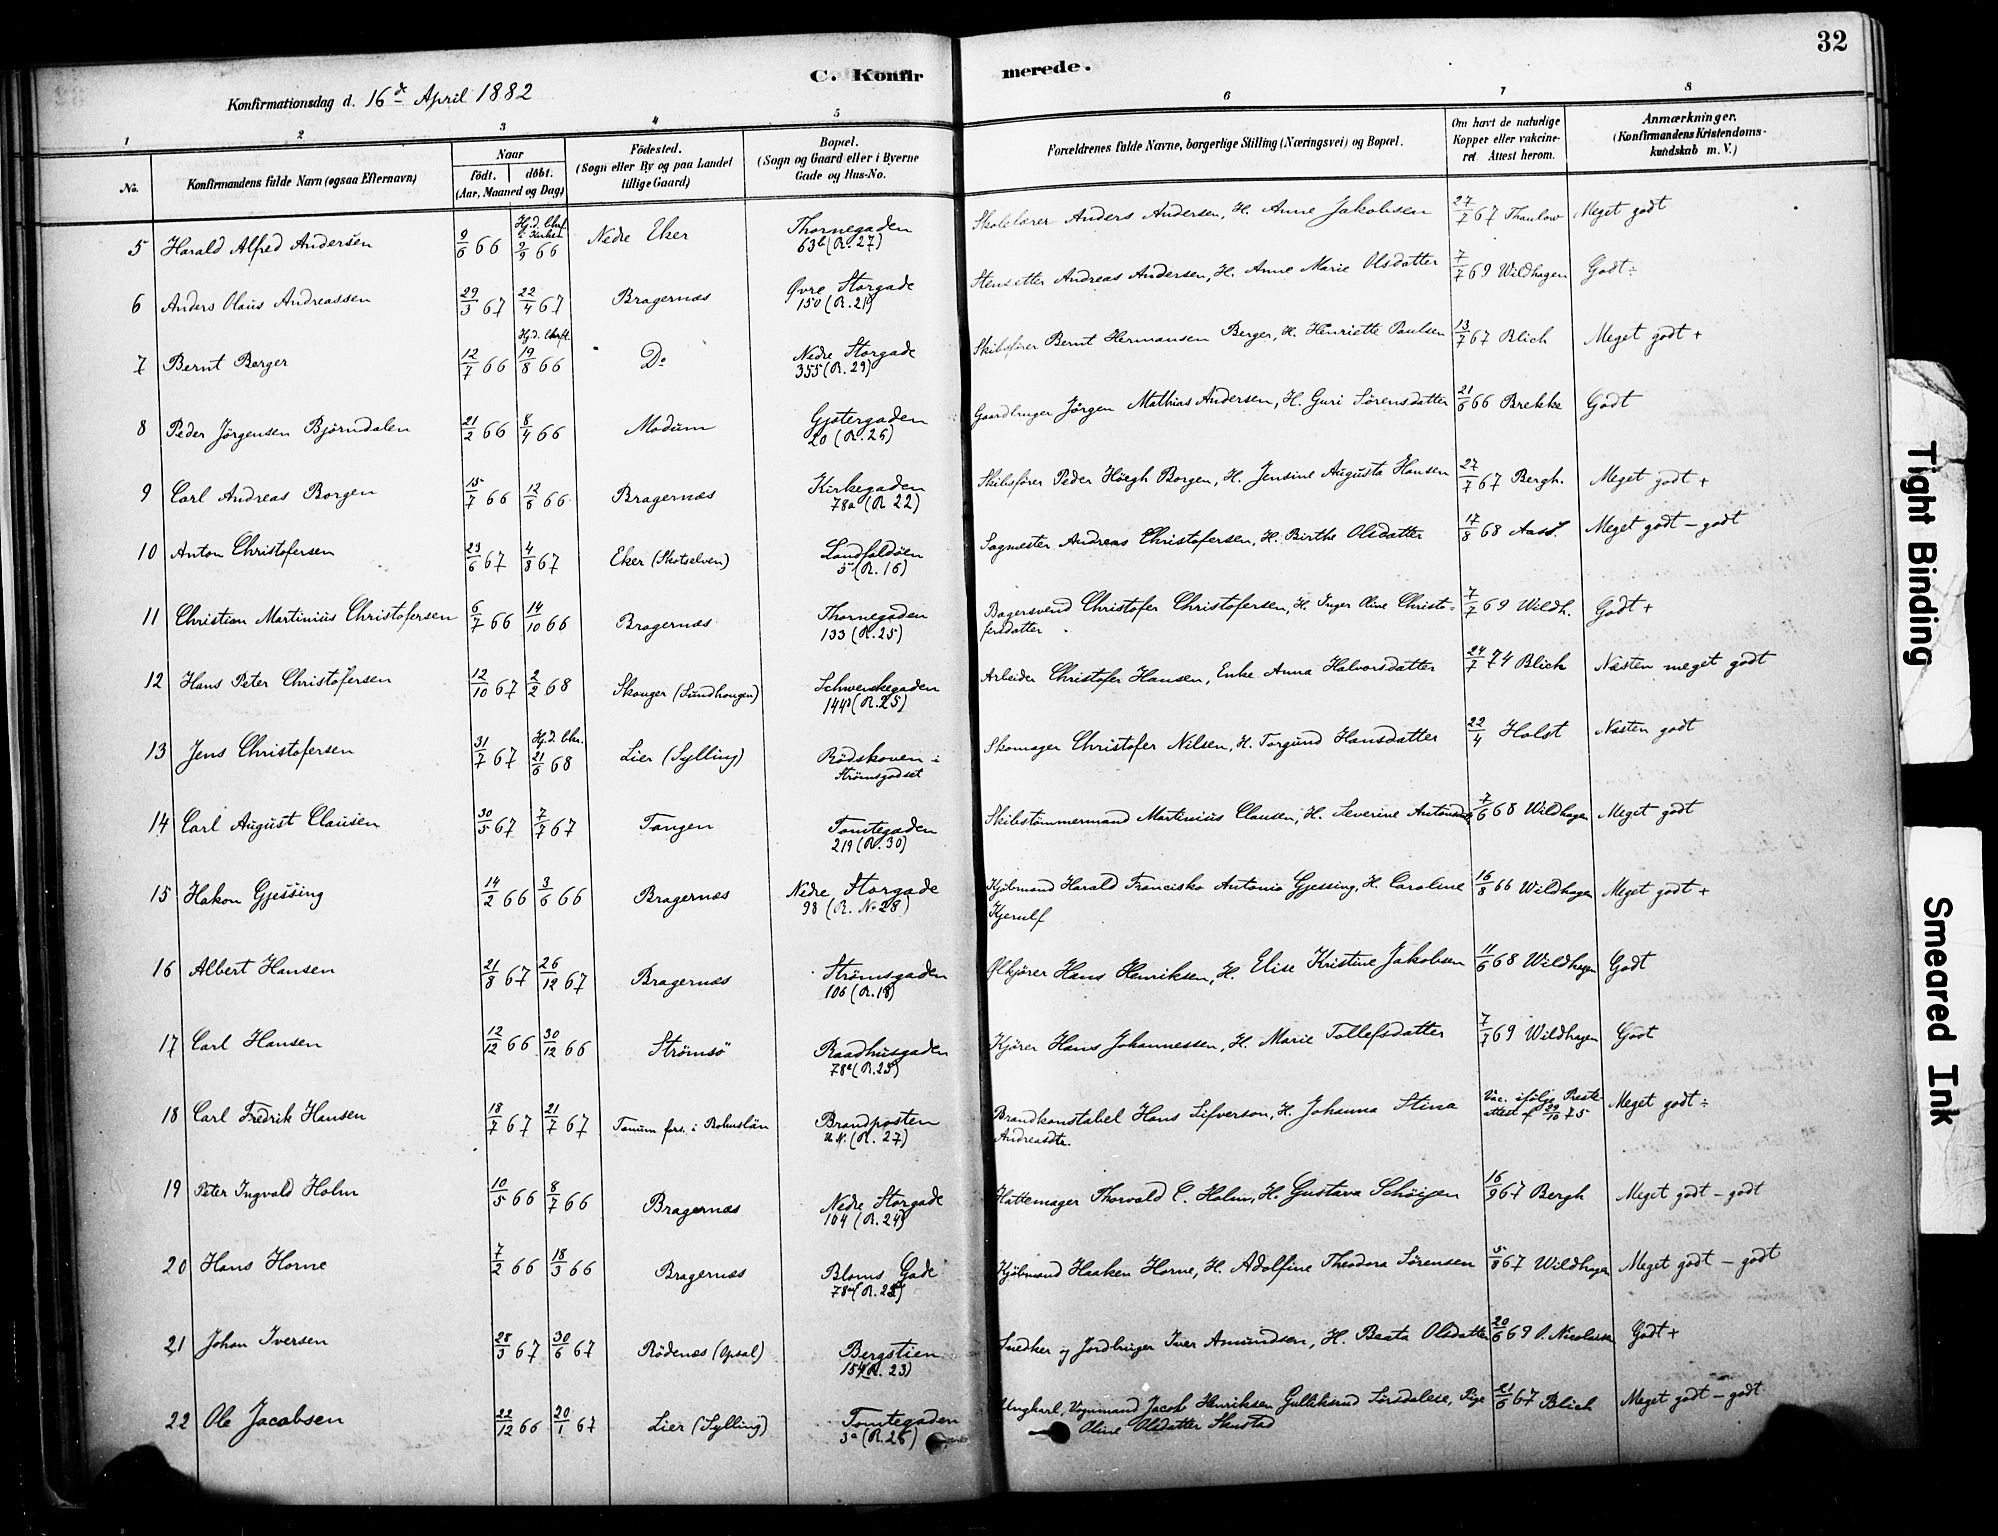 32
C. Konfirmerede.
Konfirmationsdag d. 16d April 1882
1 2 3 4 5 6 7 8
No. Konfirmandens fulde Navn (ogsaa Efternavn) Naar født. døbt. (Aar, Maaned og Dag) Fødested. (Sogn eller By og paa Landet tillige Gaard) Bopæl. (Sogn og Gaard eller i Byerne Gade og Hus-No. Forældrenes fulde Navne, borgerlige Stilling (Næringsvei) og Bopæl. Om havt de naturlige Kopper eller vakcineret Attest herom. Anmærkninger. (Konfirmandens Kristendomskundskab m. V.)
5 Harald Alfred Andersen 9/6 66 Hj.d. Chrf. i Kirken 2/9 66 Nedre Eker Thornegaden 63b (R. 27) Skolelærer Anders Andersen, H. Anne Jakobsen 27/7 67 Thaulow Meget godt
6 Anders Olaus Andreassen 29/3 67 22/4 67 Bragernæs Øvre Storgade 150 (R. 21) Stensetter Andreas Andersen, H. Anne Marie Olsdatter 7/7 69 Wildhagen Godt ÷
7 Bernt Berger 12/7 66 Hj.d. Chrf. 19/8 66 Do Nedre Storgade 355 (R. 29) Skibsfører Bernt Hermansen Berger, H. Henriette Paulsen 13/7 67 Blich Meget godt +
8 Peder Jørgensen Bjørndalen 21/2 66 8/4 66 Modum Gjetergaden 20 (R. 26) Gaardbruger Jørgen Mathias Andersen, H. Guri Sørensdatter 21/6 66 Brekke Godt
9 Carl Andreas Borgen 15/7 66 12/8 66 Bragernæs Kirkegaden 78a (R 22) Skibsfører Peder Höegh Borgen, H. Jensine Augusta Hansen 27/7 67 Bergh. Meget godt +
10 Anton Christofersen 23/6 67 4/8 67 Eker (Skotselven) Landfaldøen 5 (R. 16) Sagmester Andreas Christofersen, H. Birthe Olsdatter 17/8 68 Aass. Meget godt – godt
11 Christian Martinius Christofersen 6/7 66 14/10 66 Bragernæs Thornegaden 133 (R. 25) Bagersvend Christofer Christofersen, H. Inger Oline Christofersdatter 7/7 69 Wildh. Godt +
12 Hans Peter Christofersen 12/10 67 2/2 68 Skouger (Lundhougen) Schwenkegaden 144b (R. 25) Arbeider Christofer Hansen, Enke Anna Halvorsdatter 24/7 74 Blich Næsten meget godt
13 Jens Christofersen 31/7 67 Hj.d. Chr. 21/6 68 Lier (Sylling) Rødskoven i Strømsgodset Skomager Christofer Nilsen, H. Torgund Hansdatter 22/4 Holst Næsten godt
14 Carl August Clausen 30/5 67 7/7 67 Tangen Tomtegaden 219 (R. 30) Skibstømmermand Martinius Clausen, H. Severine 7/6 68 Wildhagen Meget godt
15 Hakon Gjessing 14/2 66 3/6 66 Bragernæs Nedre Storgade 98 (R. No 28) Kjøbmand Harald Francisko Antonio Gjessing, H. Caroline Kjerulf 16/8 66 Wildhagen Meget godt +
16 Albert Hansen 21/8 67 26/12 67 Bragernæs Strømsgaden 106 (R. 18) Ølkjører Hans Henriksen, H. Elise Kristine Jakobsen 11/6 68 Wildhagen Godt
17 Carl Hansen 12/12 66 30/12 66 Strømsö Raadhusgaden 78c (R. 23) Kjører Hans Johannessen, H. Marie Tollefsdatter 7/7 69 Wildhagen Godt
18 Carl Fredrik Hansen 18/7 67 21/7 67 Tanum fors. i Bohuslän Brandposten u. N. (R. 27) Brandkonstabel Hans Sifverson, H. Johanna Stina Andreasdtr. Vac. ifölge Presteattest af 29/10 75 Meget godt ÷
19 Peter Ingvald Holm 10/5 66 8/7 66 Bragernæs Nedre Storgade 104 (R. 24) Hattemager Thorvald C. Holm, H. Gustava Schöien 16/9 67 Bergh Meget godt – godt
20 Hans Horne 7/2 66 18/3 66 Bragernæs Bloms Gade 78d (R. 23) Kjøbmand Haaken Horne, H. Adolfine Theodora Sørensen 5/8 67 Wildhagen Meget godt – godt
21 Johan Iversen 28/3 67 30/6 67 Rödenæs (Opsal) Bergstien 154 (R. 23) Snedker og Jordbruger Iver Amundsen, H. Beata Olsdatter 20/6 69 O. Nicolaisen Godt +
22 Ole Jacobsen 22/12 66 20/1 67 Lier (Sylling) Tomtegaden 3a (R. 26) Ungkarl, Vognmand Jacob Henriksen Gulleksrud Sørsdalene, Pige Oline Olsdatter Skustad 21/6 67 Blich Meget godt – godt
Tight Binding
Smeared Ink